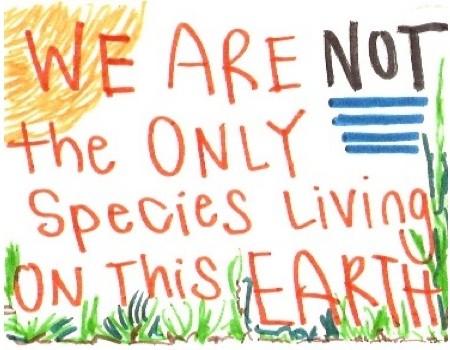 WE ARE NOT
the ONLY
Species Living
ON This EARTH